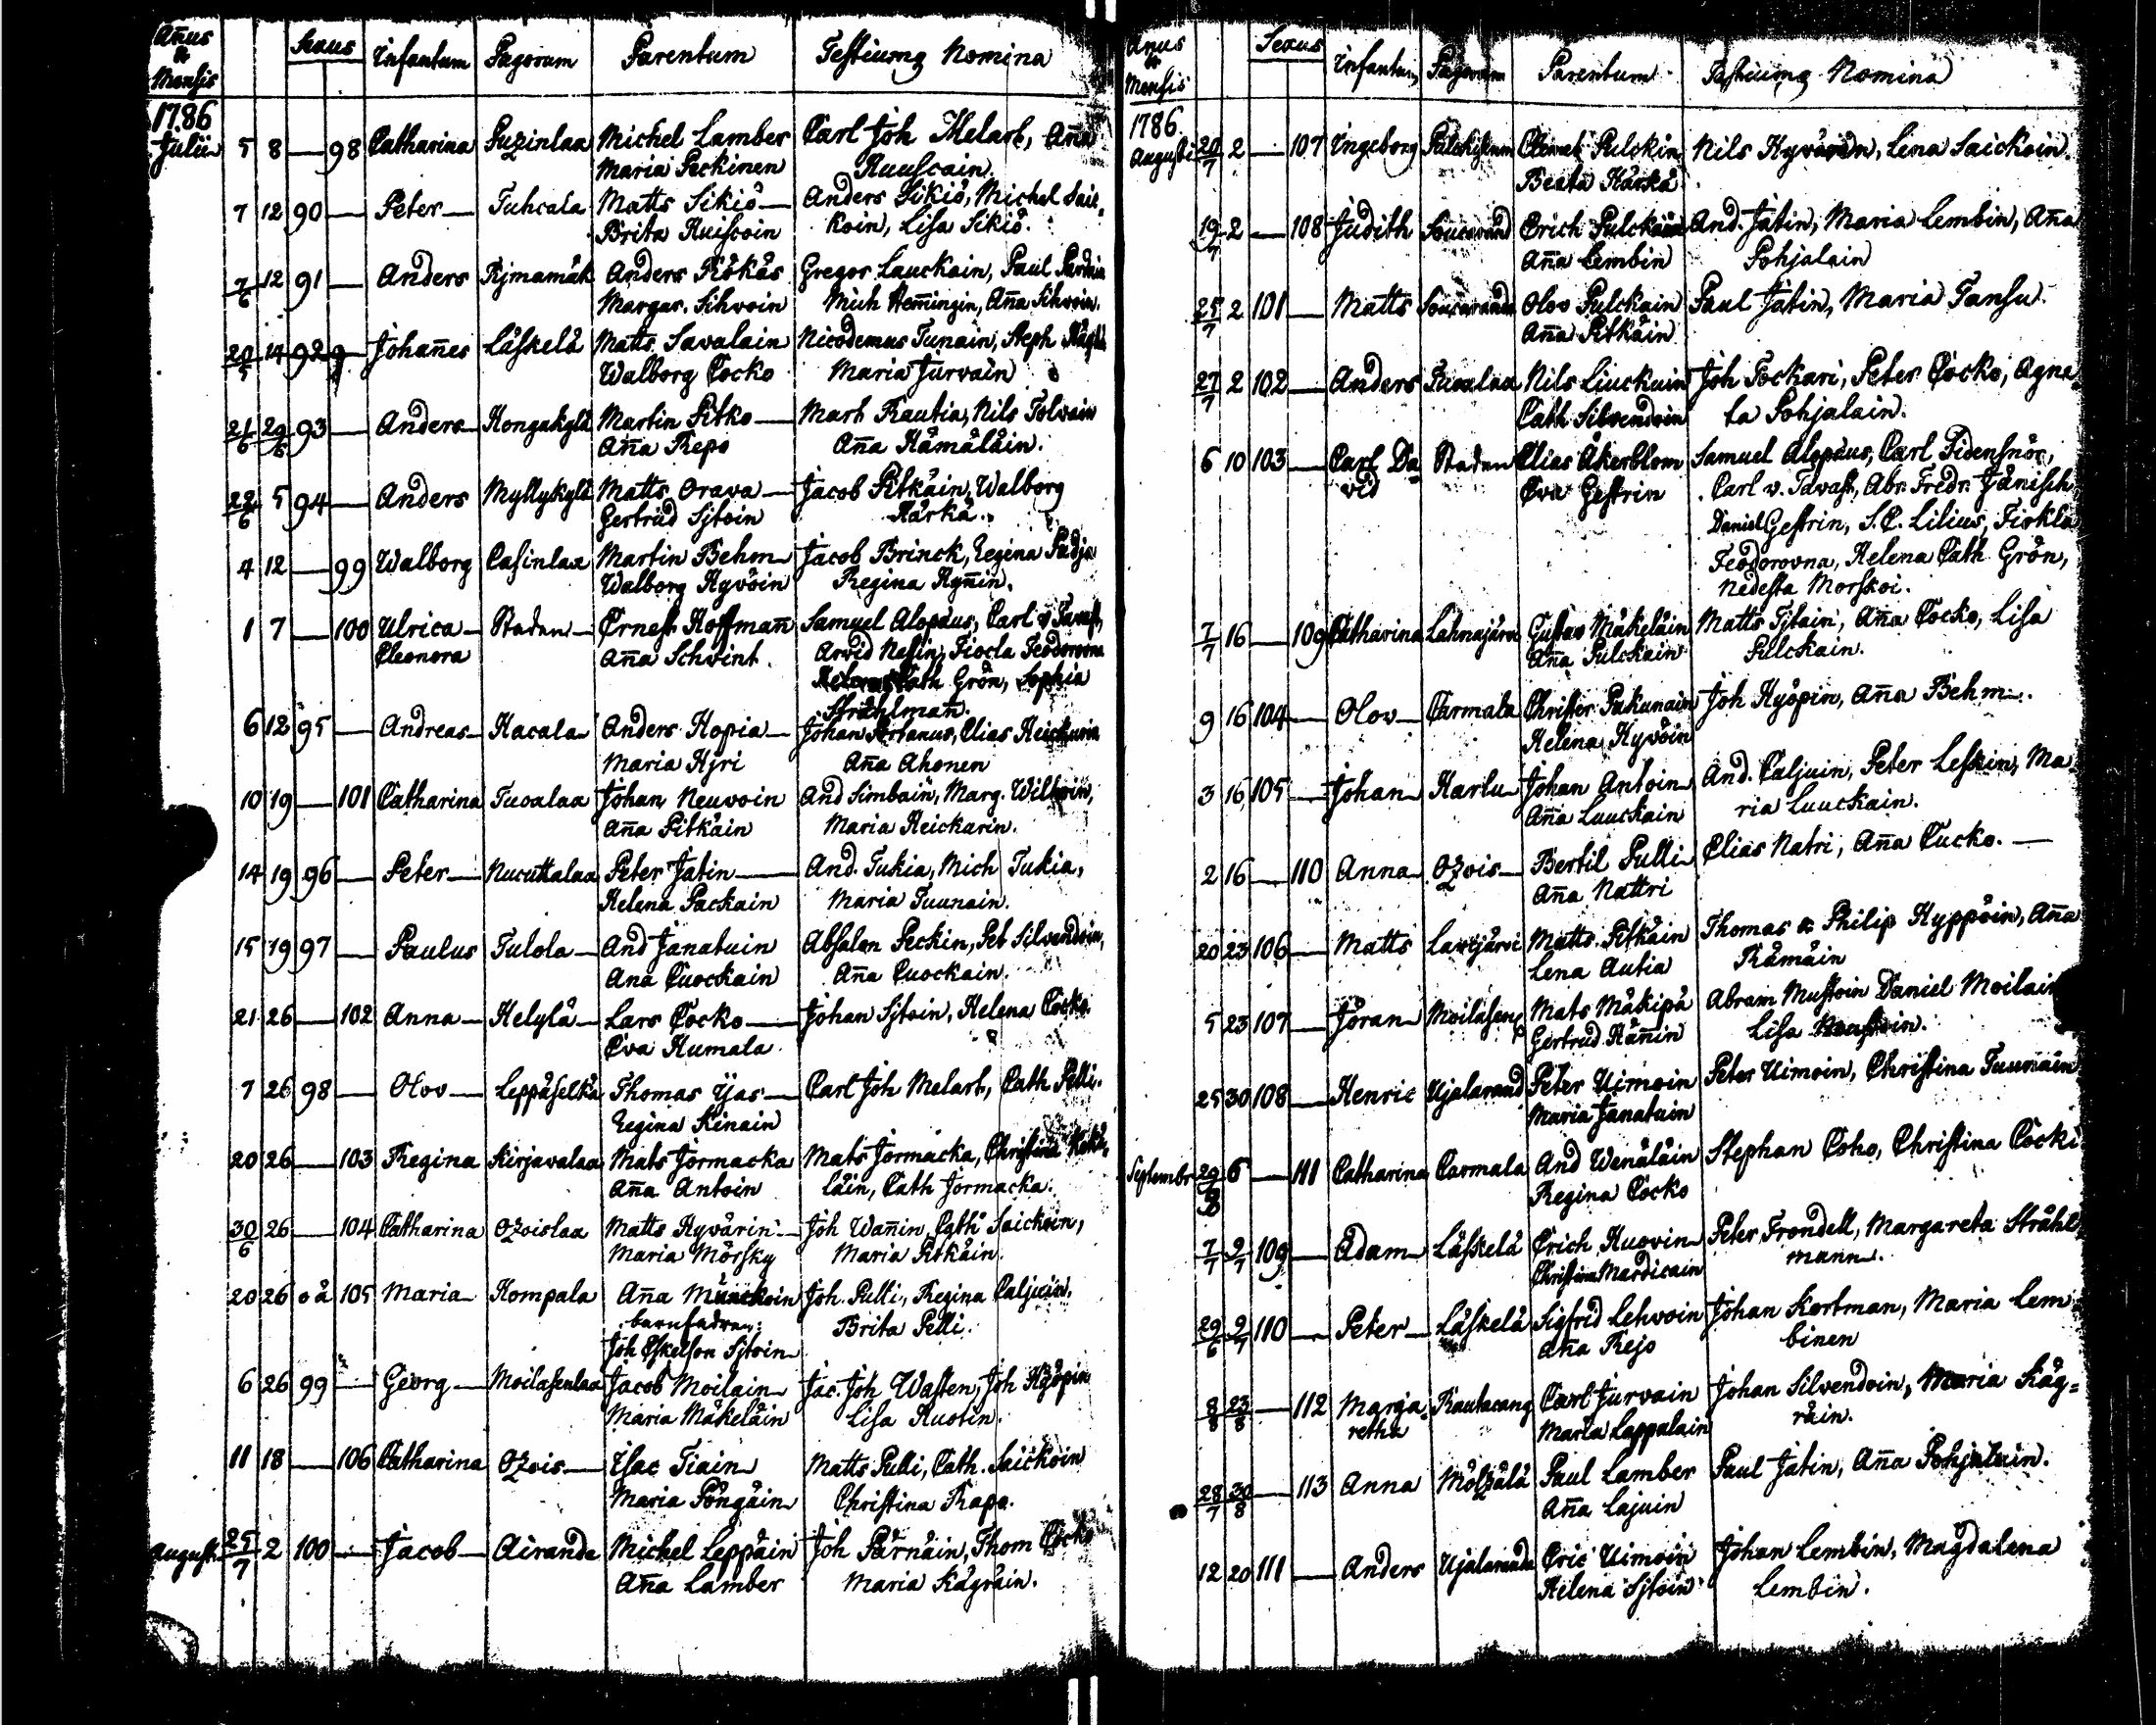 Añus & Mensis Sexus Infantum Pagorum Parentum Testiumq Nomina
1786
Julii 5 8 — 98 Catharina Puzinlaa Michel Lamber Carl Joh Melart, Aña
Maria Peckinen Ruuscain.
7 12 90 — Peter — Tuhcala Matts Sikiö — Anders Sikiö, Michel Saic=
Brita Ruiscoin koin, Lisa Sikiö.
7/6 12 91 — Anders Rjmamäk Anders Rökäs Gregor Lauckain, Paul
Margar. Sihvoin Mich Hemingin, Aña Sihvoin.
20/5 14 92 — Johañes Läskelä Matts Savalain Nicodemus Tunain, Steph
Walborg Cocko Maria Jurvain
21/6 29/6 93 — Anders Hongakylä Martin Pitko — Mart Rautia, Nils Tolvain
Aña Repo Aña Hämäläin.
22/6 5 94 — Anders Myllykylä Matts Orava — Jacob Pitkäin, Walborg
Gertrud Sjtoin Kärkä.
4 12 — 99 Walborg Casinlax Martin Behm — Jacob Brinck, Regina Padja
Walborg Hyvöin Regina Hyñin.
1 7 — 100 Ulrica — Staden — Ernest Hoffmañ Samuel Alopæus, Carl v Tavast,
Eleonora Aña Schvint. Arvid Nesin, Fiocla Feodorovna
Helena Cath Grön, Sophia
Stråhlmañ.
6 12 95 — Andreas — Hacala Anders Hopia — Johan, Elias Heickurin
Maria Hjri Aña Ahonen
10 19 — 101 Catharina Tuoxlaa Johan Neuvoin And Simbäin, Marg. Wilhoin,
Aña Pitkäin Maria Heickurin.
14 19 96 — Peter — Nucuttalaa Peter Jatin — And. Tukia, Mich Tukia,
Helena Packain Maria Tuunain.
15 19 97 — Paulus Tulola — And Janatuin Absalon Peckin, Pet Silvendoin,
Ana Cuockain Aña Cuockain.
21 26 — 102 Anna — Helylä — Lars Cocko — Johan Sjtoin, Helena Cocko.
Eva Humala
7 26 98 — Olov — Leppäselkä Thomas Ijas — Carl Joh Melart, Cath Pelli.
Regina Kinain
20 26 — 103 Regina Kirjavalaa Mats Jormacka Mats Jormacka, Christina
Aña Antoin läin, Cath Jormacka.
30/6 26 — 104 Catharina Ozoislaa Matts Hyvärin — Joh Wañin, Cath Saickoin,
Maria Mörsky Maria Pitkäin.
20 26 oä 105 Maria Kompala Aña Münckoin Joh. Pulli, Regina Caljuin.
barnfadren: Brita Pelli.
Joh Eskelson Sjtoin
6 26 99 — Georg — Moilasenlaa Jacob Moilain Jac. Joh Wasten, Joh Hyöpin
Maria Mäkeläin Lisa Rustin.
11 18 — 106 Catharina Ozois — Isac Tiain Matts Pulli, Cath. Saickoin
Maria Pöngäin Christina Rapo.
August 25/7 2 100 — Jacob — Airanda Michel Leppäin Joh Pärnäin, Thom Cocko
Aña Lamber Maria Kägräin.
Anus & Mensis Sexus Infantum Pagorum Parentum Testiumq Nomina
1786
Augusti 20/7 2 — 107 Ingeborg Clemet Pulckin Nils Hyvärin, Lena Saickoin.
Beata Kärkä
19/7 2 — 108 Judith Soucarand Erich Pulckäin And. Jatin, Maria Lembin, Aña
Aña Lembin Pohjalain
25/7 2 101 — Matts Soucaranda Olov Pulckain Paul Jatin, Maria Tansu
Aña Pitkäin
27/7 2 102 — Anders Nils Liuckuin Joh Tockari, Peter Cocko, Agne=
Cath Silvendoin ta Pohjalain.
6 10 103 — Carl Da Staden Elias Åkerblom Samuel Alopæus, Carl Tidensnör,
vid Eva Gestrin Carl v. Tavast, Abr. Fredr. Jänisch
Daniel Gestrin, S. C. Lilius, Fiokla
Feodorovna, Helena Cath Grön,
Nedesta Morskoi.
7/7 16 — 109 Catharina Lahnajärvi Gustav Mäkeläin Matts Tjtain, Aña Cocko, Lisa
Aña Pulckain Pulckain.
9 16 104 — Olov — Carmala Christer Pakunain Joh Hyöpin, Aña Behm.
Helena Hyvöin
3 16 105 — Johan Harlu Johan Antoin And. Caljuin, Peter Leskin, Ma
Aña Luuckain ria Luuckain.
2 16 — 110 Anna Ozois — Bertil Pulli Elias Natri, Aña Cucko. —
Aña Nattri
20 23 106 — Matts Matts Pitkäin Thomas & Philip Hyppöin, Aña
Lena Autia Rämäin
5 23 107 — Jöran Moilasenp Mats Mäkipä Abram Mustoin Daniel Moilain
Gertrud Häñin Lisa
25 30 108 — Henric Ujalarand Peter Uimoin Peter Uimoin, Christina Tuunain
Maria Janatuin
Septembr 29/8 6 — 111 Catharina Carmala And Wenäläin Stephan Coho, Christina Cocki
Regina Cocko
7/7 9/7 109 — Adam Läskelä Erich Huovin Peter Trondell, Margareta Stråhl
Christina Mardicain mann.
29/6 9/7 110 — Peter Läskelä Sigfrid Lehvoin Johan Kortman, Maria Lem=
Aña Rejo binen
8/8 23/8 — 112 Marga= Rautacang Carl Jurvain Johan Silvendoin, Maria Käg=
retha Maria Lappalain räin.
28/7 30/8 — 113 Anna Mölzälä Paul Lamber Paul Jatin, Aña Pohjalain.
Aña Lajuin
12 20 111 — Anders Ujalaranda Eric Uimoin Johan Lembin, Magdalena
Helena Sjtoin Lembin.